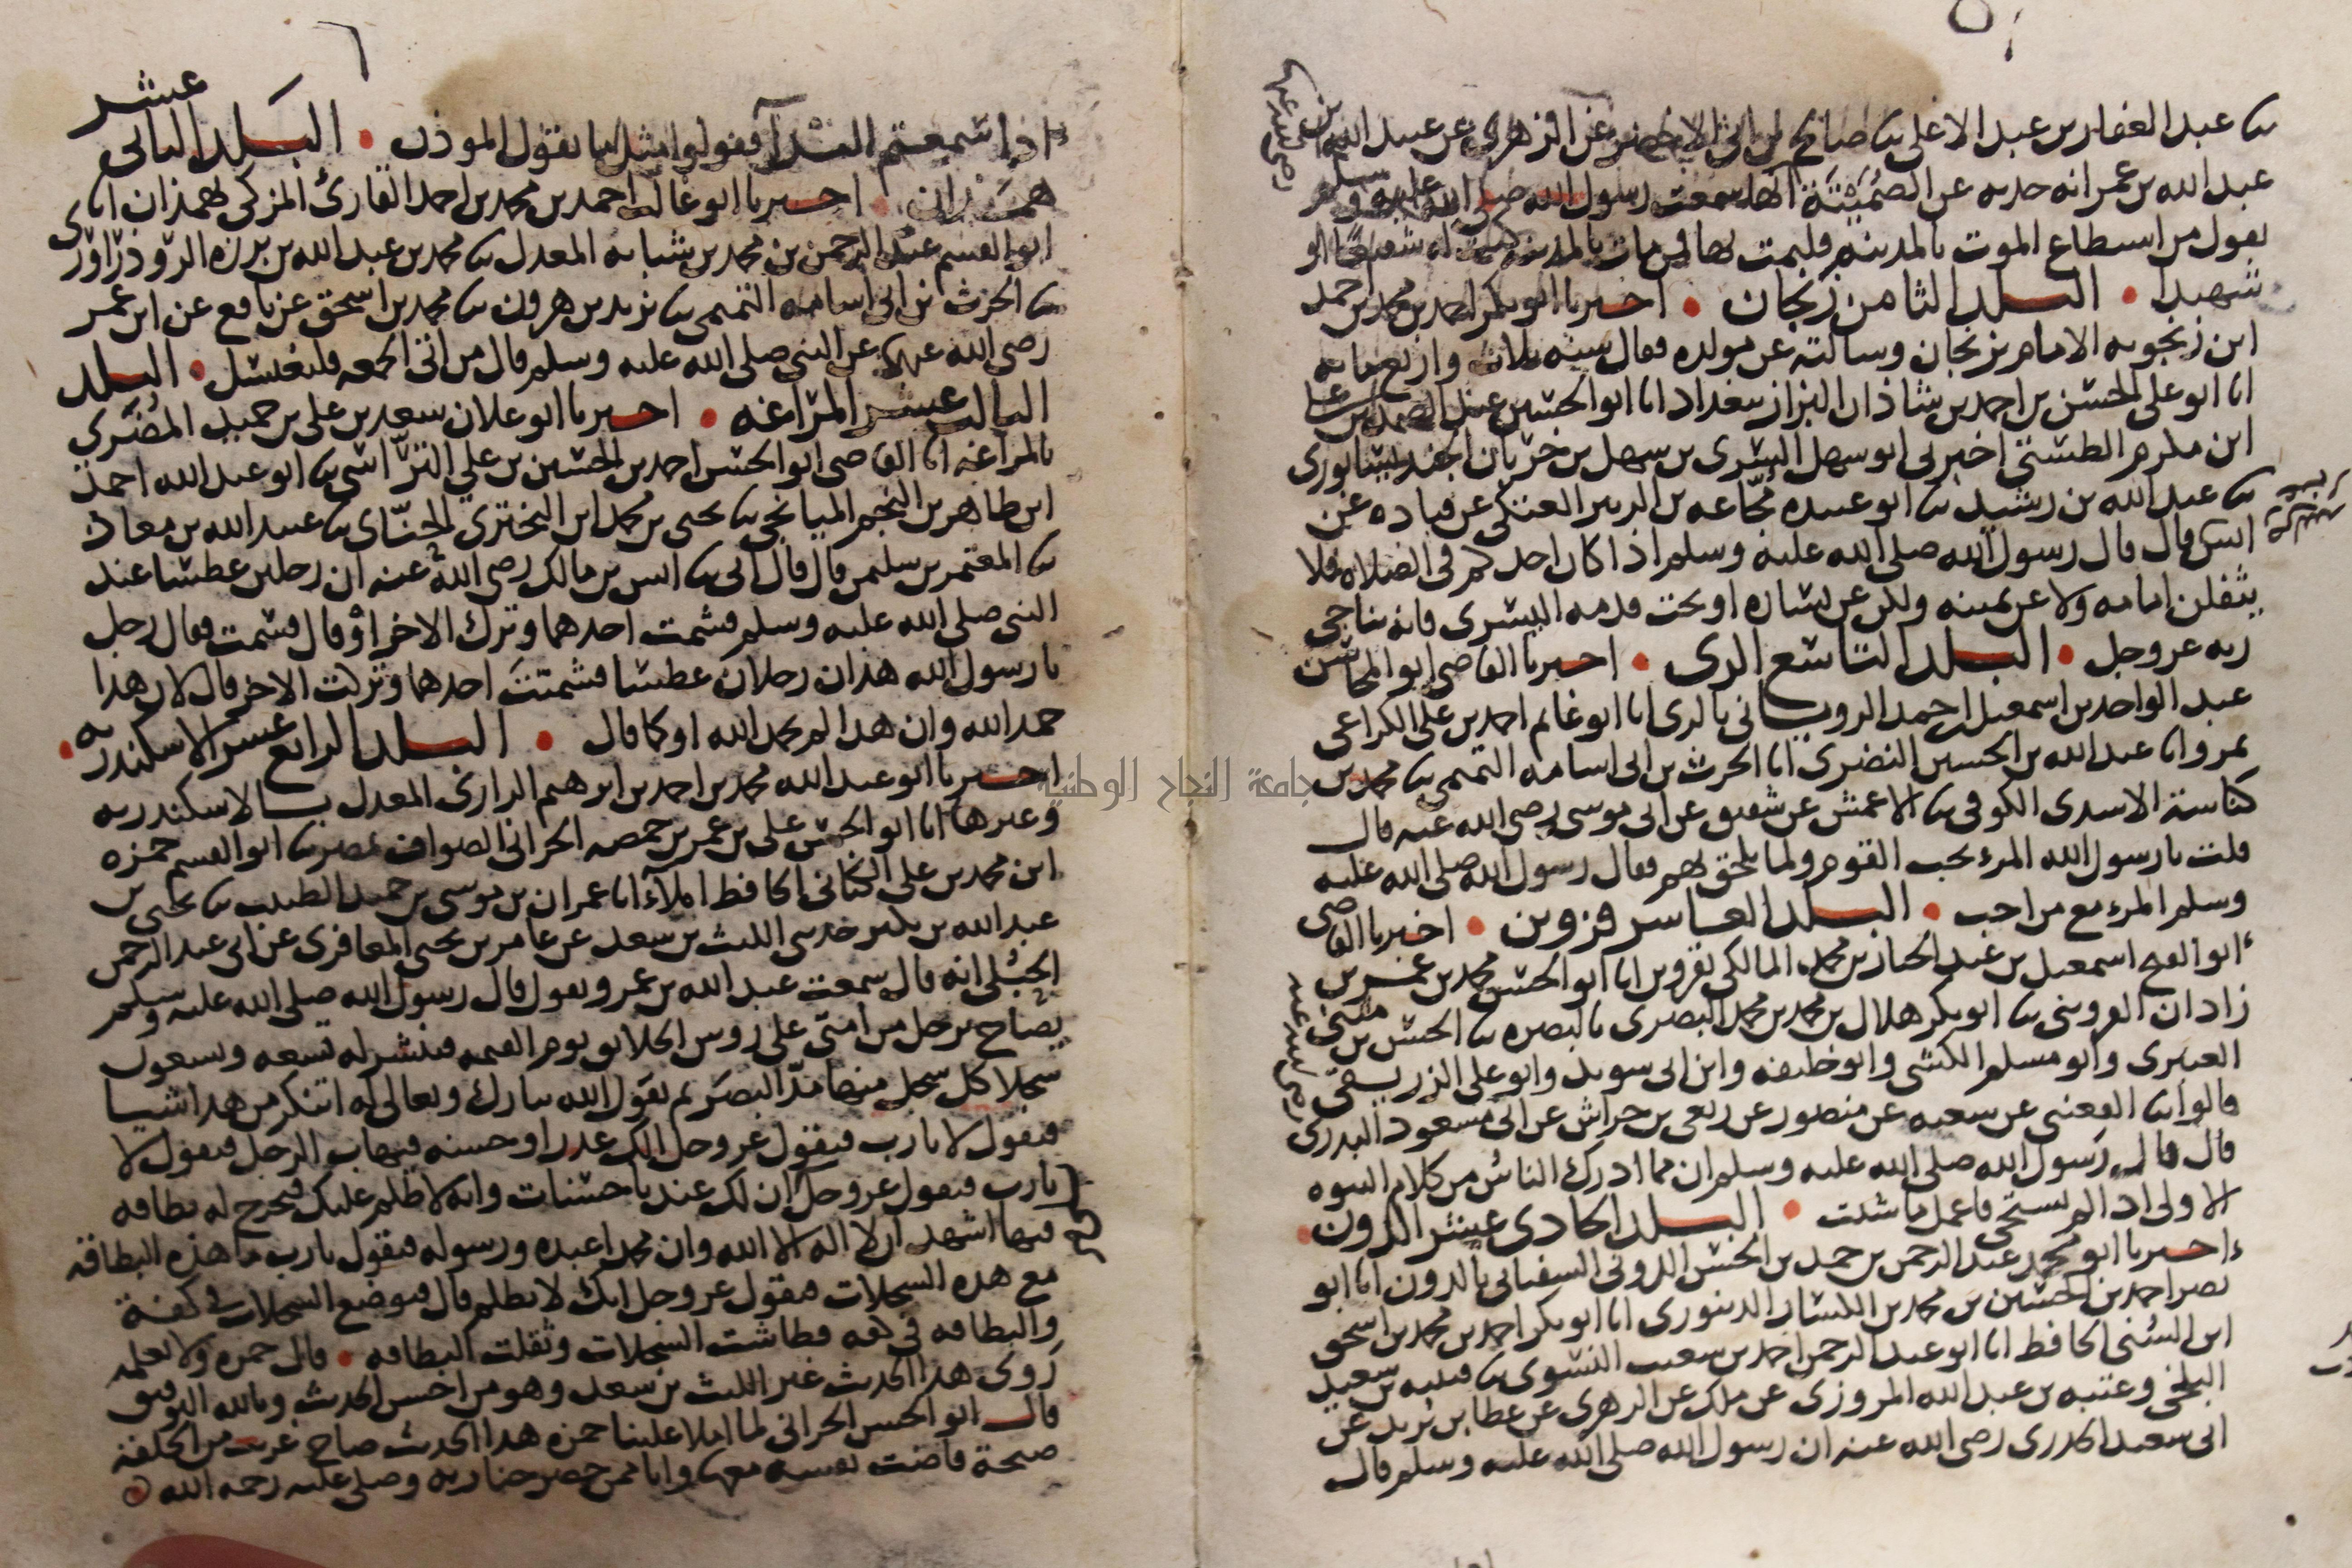 ثنا عبد الغفار بن عبد الاعلى ثنا صالح بن ابي الاخضر عن الزهري عن عبيد الله بن
رضي الله عنها
عبد الله بن عمر انه حدثه عن الصُمَيْتَة انها سمعت رسول الله صلى الله عليه وسلم
يقول من استطاع الموت بالمدينه فليمت بها فمن مات بالمدينه كنت له شفيعًا او
شهيدا . البلد الثامن زنجان . اخبرنا ابو بكر احمد بن محمد بن احمد
ابن زنجويه الامام بزنجان وسالته عن مولده فقال سنه ثلاث واربعمايه
انا ابو علي الحسن بن احمد بن شاذان البزاز ببغداد انا ابو الحسين عبد الصمد بن علي
ابن مكرم الطستي اخبرني ابو سهل السري بن سهل بن خربان الجنديسابوري
ثنا عبد الله بن رشيد ثنا ابو عبيده مُجّاعه بن الزبير العتكي عن قتاده عن
انس قال قال رسول الله صلى الله عليه وسلم اذا كان احدكم في الصلاه فلا
يتفلن امامه ولا عن يمينه ولكن عن يساره او تحت قدمه اليسرى فانه يناجي
ربه عز وجل . البلد التاسع الري . اخبرنا القاضي ابو المحاسن
عبد الواحد بن اسمعيل بن احمد الروياني بالري انا ابو غانم احمد بن علي الكراعي
بمرو انا عبد الله بن الحسين النضري انا الحرث بن ابي اسامه التميمي ثنا محمد بن
كناسة الاسدي الكوفي ثنا الاعمش عن شقيق عن ابي موسى رضي الله عنه قال
قلت يا رسول الله المرء يحب القوم ولما يلحق بهم فقال رسول الله صلى الله عليه
وسلم المرء مع من احب . البلد العاشر قزوين . اخبرنا القاضي
ابو الفتح اسمعيل بن عبد الجبار بن محمد المالكي بقزوين انا ابو الحسن محمد بن عمر بن
زادان القزويني ثنا ابو بكر هلال بن محمد بن محمد البصري بالبصره ثنا الحسن بن مثنى
العنبري وابو مسلم الكشي وابو خليفه وابن ابي سويد وابو علي الزريقي
رضي الله عنه
قالوا ثنا القعنبي عن شعبه عن منصور عن ربعي بن حراش عن ابي مسعود البدري
قال قال رسول الله صلى الله عليه وسلم ان مما ادرك الناسُ من كلام النبوه
الاولى اذا لم تستحي فاعمل ما شئت . البلد الحادي عشر الدون .
اخبرنا ابو محمد عبد الرحمن بن حمد بن الحسن الدوني السفياني بالدون انا ابو
نصر احمد بن الحسين بن محمد بن الكسار الدينوري انا ابو بكر احمد بن محمد بن اسحق
ابن السُني الحافظ انا ابو عبد الرحمن احمد بن شعيب النسوي ثنا قتيبه بن سعيد
البلخي وعتبه بن عبد الله المروزي عن ملك عن الزهري عن عطا بن يزيد عن
ابي سعيد الخدري رضي الله عنه ان رسول الله صلى الله عليه وسلم قال
اذا سمعتم الندآ فقولوا مثل ما يقول الموذن . البلد الثاني عشر
همذان . اخبرنا ابو غالب احمد بن محمد بن احمد القارئ المزكي بهمذان انا
ابو القسم عبد الرحمن بن محمد بن شبابه المعدل ثنا محمد بن عبد الله بن برزه الروذراوري
ثنا الحرث بن ابي اسامه التميمي ثنا يزيد بن هرون ثنا محمد بن اسحق عن نافع عن ابن عمر
رضي الله عنهما عن النبي صلى الله عليه وسلم قال من اتى الجمعه فليغتسل . البلد
الثالث عشر المراغه . اخبرنا ابو علان سعد بن علي بن حميد المُضَري
بالمراغه انا القاضي ابو الحسن احمد بن الحسين بن علي التراسي ثنا ابو عبد الله احمد
ابن طاهر بن النجم الميانجي ثنا يحيى بن محمد ابن البختري الحنّاى ثنا عبيد الله بن معاذ
ثنا المعتمر بن سليمن قال قال ابي ثنا انس بن مالك رضي الله عنه ان رجلين عطسا عند
النبي صلى الله عليه وسلم فشمت احدهما وترك الاخر اوْ قال فسمت فقال رجل
يا رسول الله هذان رجلان عطسا فشمتتَ احدهما وتركت الاخر قال لان هذا
حمد الله وان هذا لم يحمد الله او كما قال . البلد الرابع عشر الاسكندريه .
اخبرنا ابو عبد الله محمد بن احمد بن ابرهيم الرازي المعدل بالاسكندريه
وغيرها انا ابو الحسن علي بن عمر بن حمصه الحراني الصواف بمصر ثنا ابو القسم حمزه
ابن محمد بن علي الكناني الحافظ املآءً انا عمران بن موسى بن حميد الطبيب ثنا يحيى بن
عبد الله بن بكير حدثني الليث بن سعد عن عامر بن يحيى المعافري عن ابي عبد الرحمن
الحُبُلي انه قال سمعت عبد الله بن عمرو يقول قال رسول الله صلى الله عليه وسلم
يصاح برجل من امتي على روس الخلايق يوم القيمه فينشر له تسعه وتسعون
سجلا كل سجل منها مدّ البصَر ثم يقول الله تبارك وتعالى له اتنكر من هذا شيا
فيقول لا يا رب فيقول عز وجل الك عذر او حسنه فيهاب الرجل فيقول لا
يا رب فيقول عز وجل ان لك عندنا حسنات وانه لا ظلم عليك فتخرج له بطاقه
فيها اشهد ان لا اله الا الله وان محمدا عبده ورسوله فيقول يا رب ما هذه البطاقه
مع هذه السجلات فيقول عز وجل انك لا تظلم قال فتوضع السجلات في كفة
والبطاقه في كفه فطاشت السجلات وثقلت البطاقه . قال حمزه ولا نعلمه
رَوى هذا الحديث غير الليث بن سعد وهو من احسن الحديث وبالله التوفيق
قال ابو الحسن الحراني لما املا علينا حمزه هذا الحديث صاح غريب من الحلقه
صيحة فاضت نفسه معها وانا ممن حضر جنازته وصلى عليه رحمه الله
جامعة النجاح الوطنية